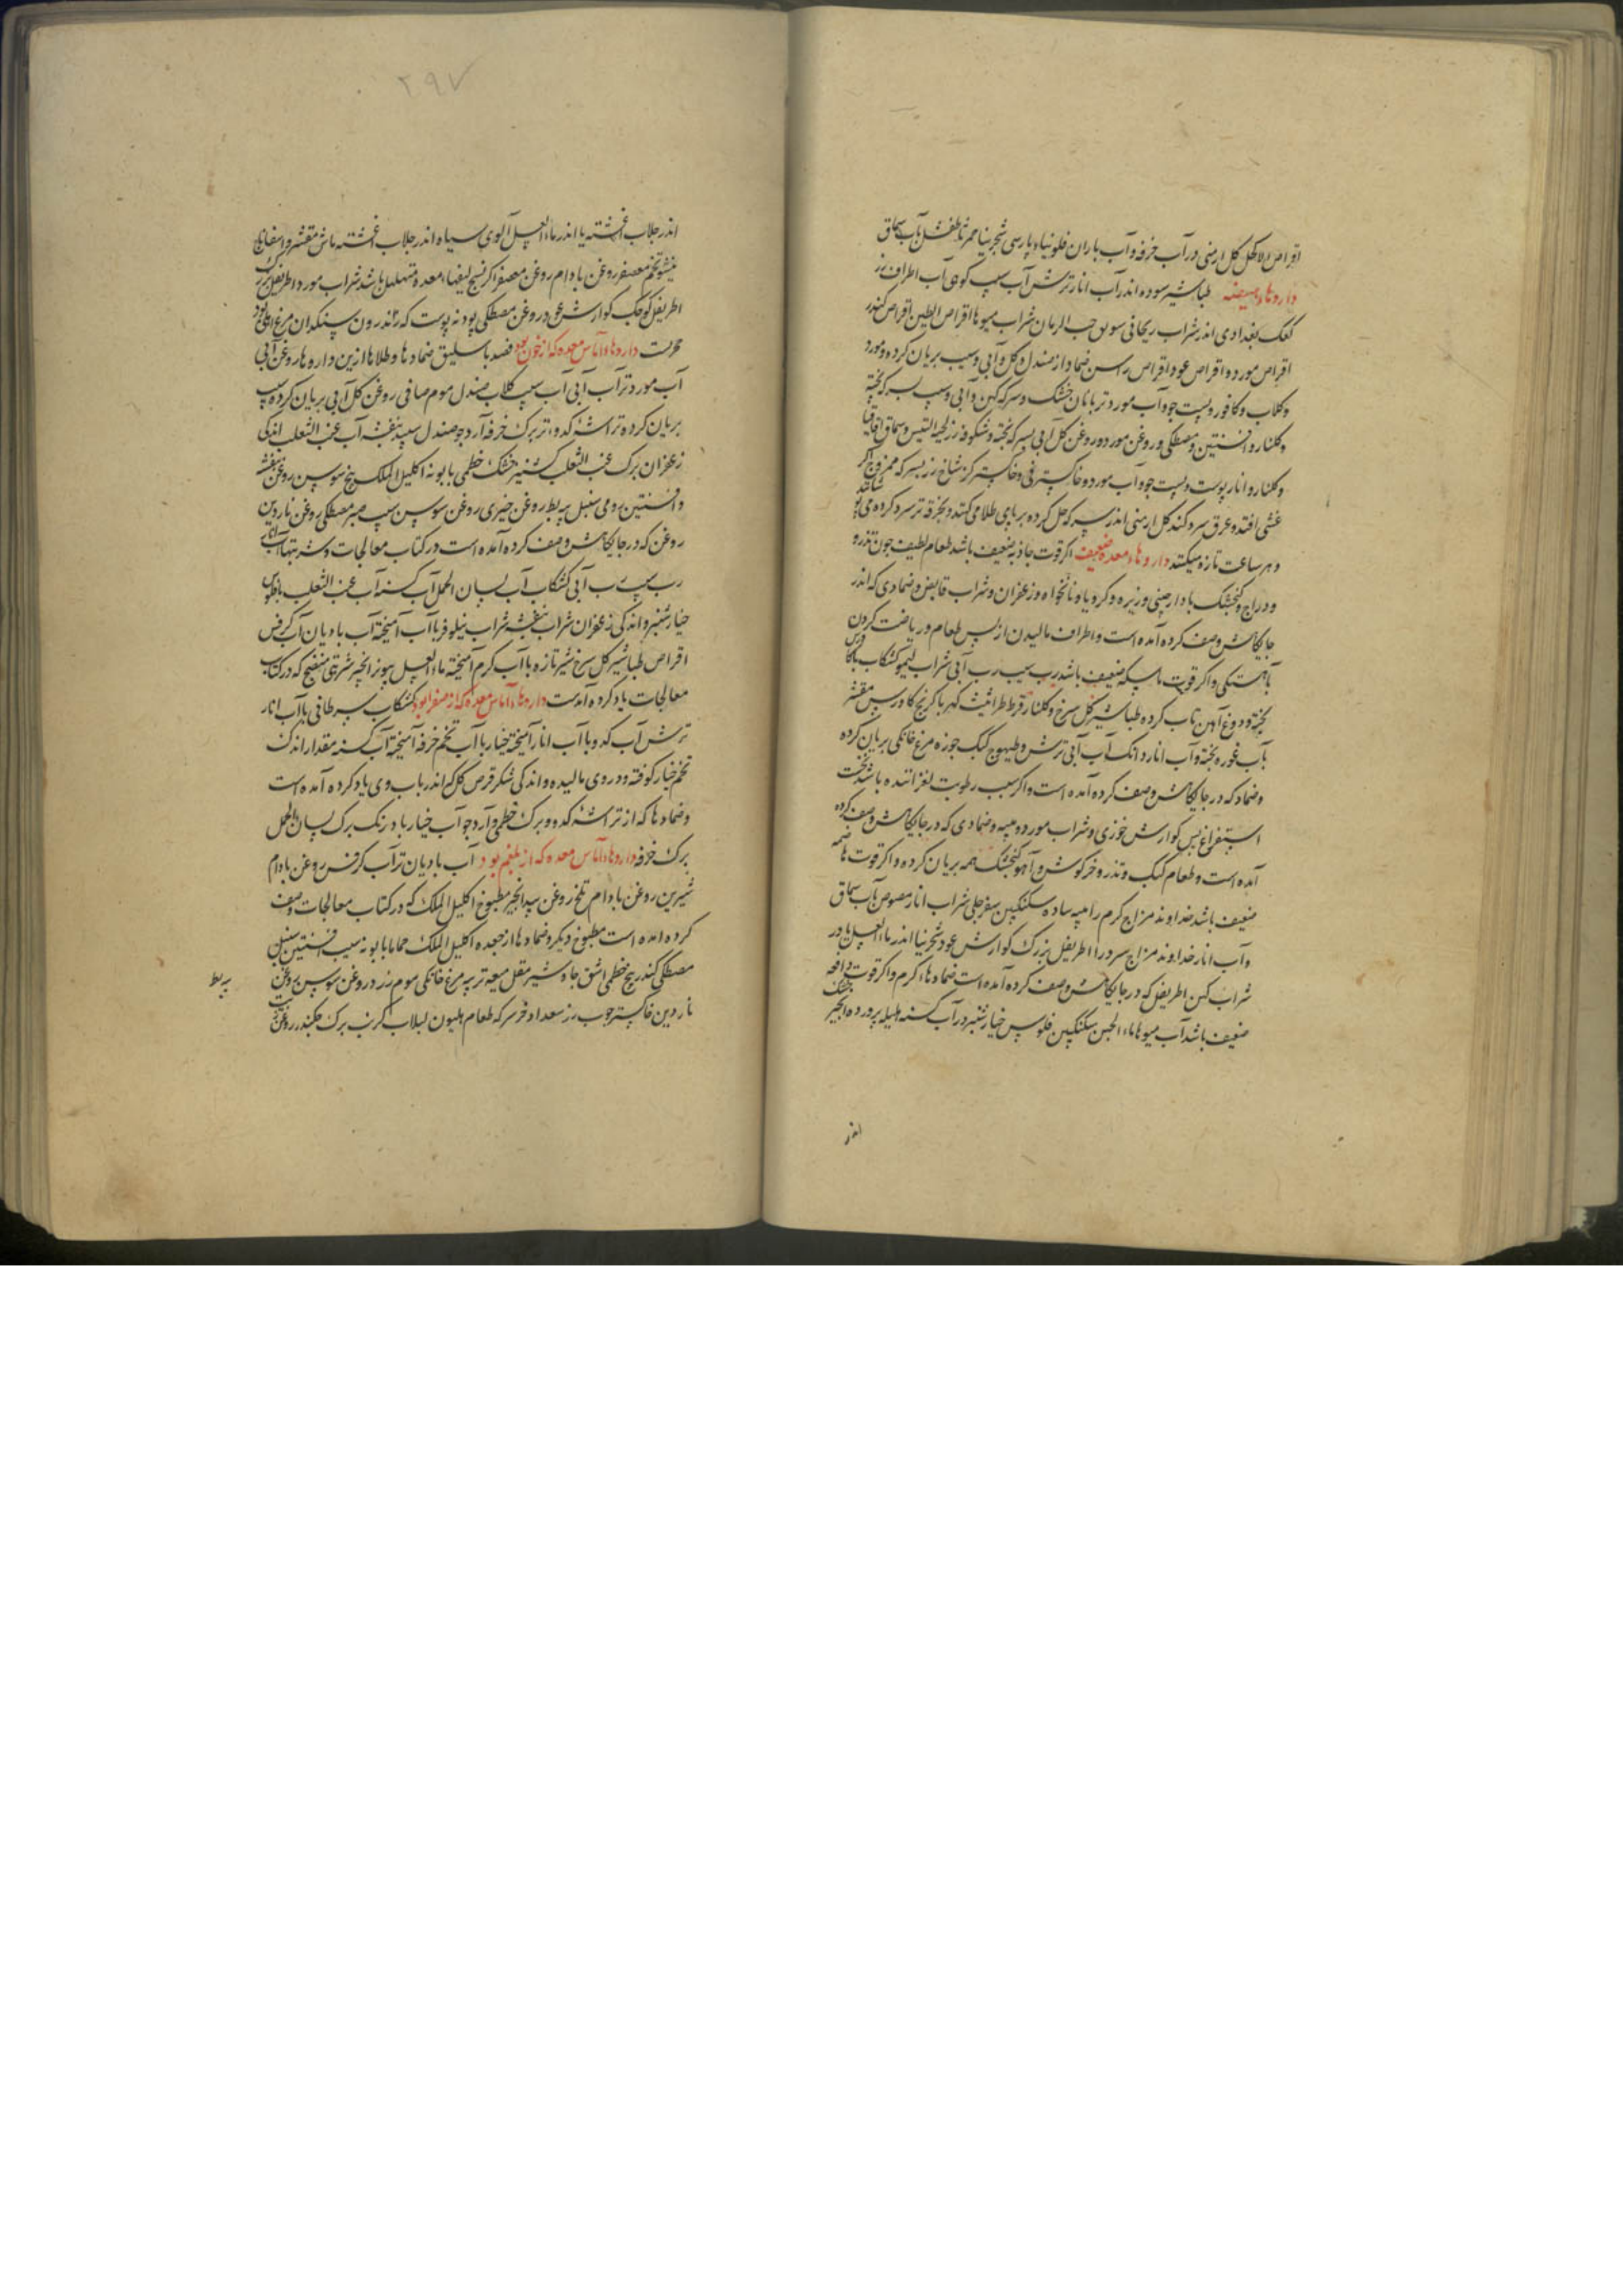 اقراص الاکحل کل ارمنی در آب خرفه و آب باران فلونیاء پارسی شجرینا آب سماق
داروهاء هیضه طباشیر سوده اندر آب انار ترش آب سیب آب اطراف رز
کعک بغدادی اندر شراب ریحانی سویق حب الرمان شراب میوها اقراص الطین اقراص کندر
اقراص مورد و اقراص عود اقراص راسن ضماد از صندل و کل و آبی و سیب بریان کرده و مورد
و کلاب و کافور و پست جو و آب مورد تر با نان خشک و سرکه کهن و آبی و سیب بسرکه پخته
و کلنار و افسنتین و مصطکی و روغن مورد و روغن کل آبی بسرکه پخته و شکوفه رز لحیة التیس و سماق اقاقیا
و کلنار و انار پوست و پست جو و آب مورد و خاکستر نی و خاکستر شاخ رز بسرکه ممزوج اکر
غشی افتد و عرق سرد کند کل ارمنی اندر سرکه حل کرده بر پای طلا می کنند و بخرقه تر سرد کرده می
و هر ساعت تازه میکنند داروهاء معده ضعیف اکر قوت جاذبه ضعیف باشد طعام لطیف جون تذرو
و دراج و کنجشک با دارجینی و زیره و کرویا و نانخواه و زعفران و شراب قابض و ضمادی که اندر
جایکاهش وصف کرده آمده است و اطراف مالیدن از پس طعام و ریاضت کردن
بآهستکی و اکر قوت ماسکه ضعیف باشد رب سیب رب آبی شراب لیمو کشکاب
پخته و دوغ آهن تاب کرده طباشیر کل سرخ و کلنار قرط طراثیث کهربا کرنج کاورس مقشر
بآب غوره پخته و آب انار دانک آب آبی ترش و طیهوج کبک جوزه مرغ خانکی بریان کرده
و ضماد که در جایکاهش وصف کرده آمده است و اکر سبب رطوبت لغزاننده باشد نخست
استفراغ پس کوارش خوزی و شراب مورد و میبه و ضمادی که در جایکاهش وصف کرده
آمده است و طعام کبک و تذرو و خرکوش و آهو کنجشک همه بریان کرده و اکر قوت هاضمه
ضعیف باشد خداوند مزاج کرم را میبه ساده سکنکبین سفرجلی شراب انار مصوص بآب سماق
و آب انار خداوند مزاج سرد را اطریفل بزرک کوارش عود شجرینا اندر ماء العسل یا در
شراب کهن اطریفل که در جایکاهش وصف کرده آمده است ضمادهاء کرم و اکر قوت دافعه
ضعیف باشد آب میوها ماء الجبن سکنکبین فلوس خیارشنبر در آب کسنه هلیله پرورده انجیر خشک
اندر
۲۹۷
اندر جلاب آغشته یا اندر ماء العسل آلوی سیاه اندر جلاب آغشته ماش مقشر و اسفاناخ
تخم معصفر روغن بادام روغن معصفر اکر نسج لیفهاء معده متهلهل باشد شراب مورد اطریفل بزرک
اطریفل کوجک کوارش عود روغن مصطکی پودنه پوست که اندرون سنکدان مرغ بود
مجربست داروهاء آماس معده که از خون بود فصد باسلیق ضمادها و طلاها ازین داروها روغن آبی
آب مورد تر آب آبی آب سیب کلاب صندل موم صافی روغن کل آبی بریان کرده سیب
بریان کرده تراشه کدوء تر برک خرفه آرد جو صندل سپید بنفشه آب عنب الثعلب اندکی
زعفران برک عنب الثعلب کشنیز خشک خطمی بابونه اکلیل الملک بیخ سوسن روغن بنفشه
و افسنتین رومی سنبل پیه بط روغن خیری روغن سوسن سیب صبر مصطکی روغن ناردین
روغن که در جایکاهش وصف کرده آمده است در کتاب معالجات و شربتها آب انار
رب سیب رب آبی کشکاب آب لسان الحمل آب کسنه آب عنب الثعلب با فلوس
خیارشنبر و اندکی زعفران شراب بنفشه شراب نیلوفر با آب آمیخته آب بادیان آب کرفس
اقراص طباشیر کل سرخ شیر تازه با آب کرم آمیخته ماء العسل مویز انجیر شربتی منضج که در کتاب
معالجات یاد کرده آمدست داروهاء آماس معده که از صفرا بود کشکاب سرطانی با آب انار
ترش آب کدو با آب انار آمیخته خیار با آب تخم خرفه آمیخته آب کسنه مقدار اندک
تخم خیار کوفته و در وی مالیده و اندکی شکر قرص کل که اندر باب وی یاد کرده آمده است
و ضمادها که از تراشه کدو و برک خطمی و آرد جو آب خیار بادرنک برک لسان الحمل
برک خرفه داروهاء آماس معده که از بلغم بود آب بادیان تر آب کرفس روغن بادام
شیرین روغن بادام تلخ روغن بیدانجیر مطبوخ اکلیل الملک که در کتاب معالجات وصف
کرده آمده است مطبوخ دیکر و ضمادها از جعده اکلیل الملک حماما بابونه سیب افسنتین سنبل
مصطکی کندر بیخ خطمی اشق جاوشیر مقل میعه تر پیه مرغ خانکی موم زرد روغن سوسن روغن
ناردین خاکستر جوب رز سعد اذخر سرکه طعام هلیون لبلاب کرنب برک جکندر روغن زیت
پیه بط